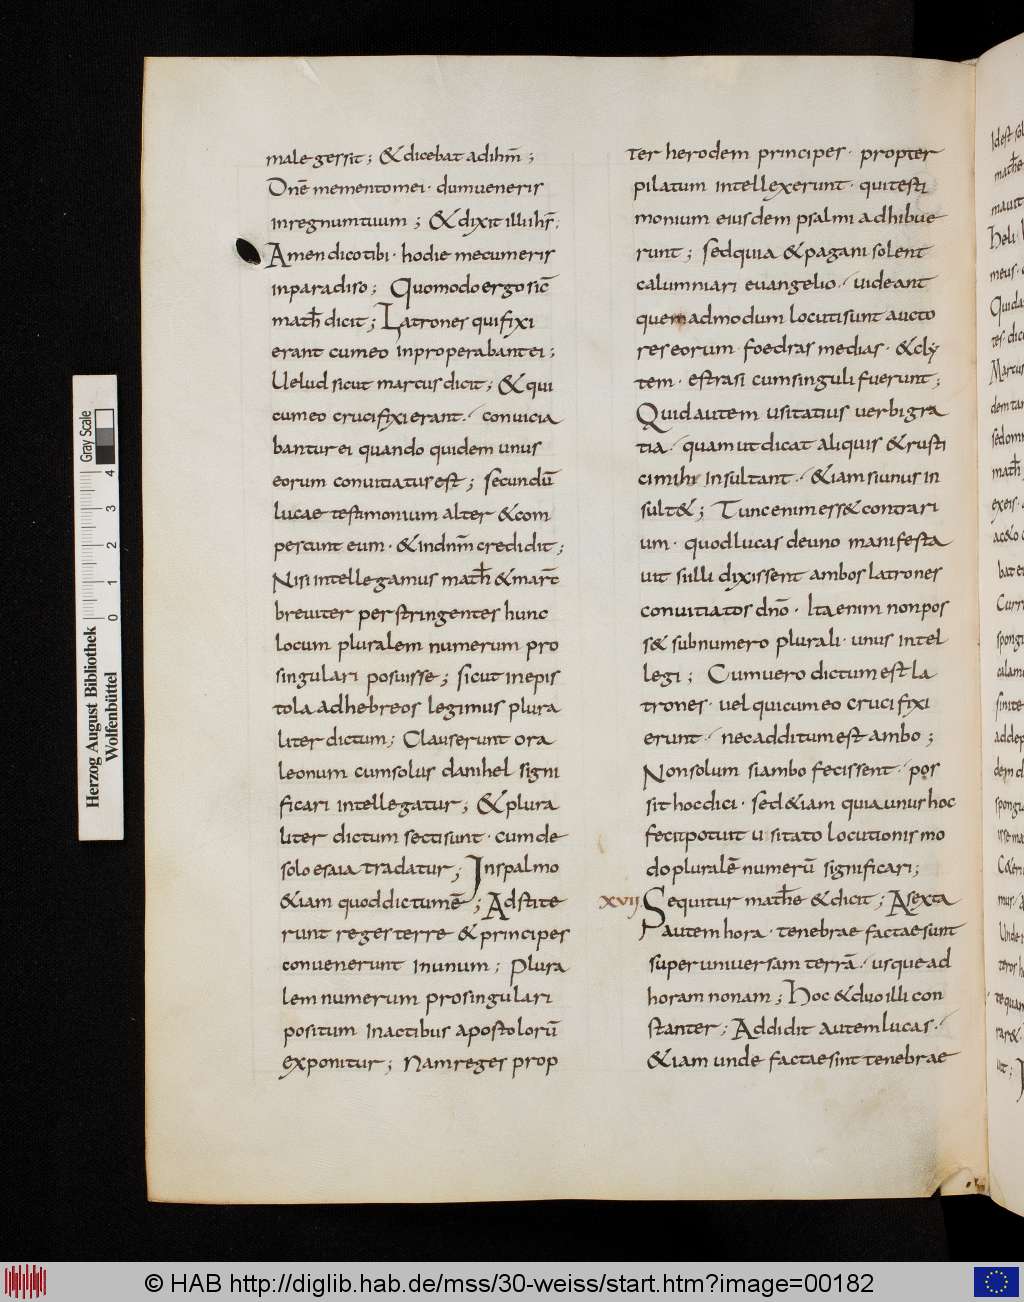 male gessit; & dicebat ad ihm̄;
Dnē memento mei· dum veneris
in regnum tuum; & dixit illi ihs̄·
Amen dico tibi· hodie mecum eris
in paradiso; Quomodo ergo sic̄
math̄ dicit; Latrones qui fixi
erant cum eo inproperabant ei;
Uelud sicut marcus dicit; & qui
cum eo crucifixi erant·/ convicia
bantur ei quando quidem unus
eorum convitiatus est; secundū
lucae testimonium alter & com
pescunt eum· & in dnm̄ credidit;
Nisi intellegamus math̄ & mart̄
breviter perstringentes hunc
locum pluralem numerum pro
singulari posuisse; sicut in epis
tola ad hebreos legimus plura
liter dictum; Clauserunt ora
leonum cum solus danihel signi
ficari intellegatur; & plura
liter dictum secti sunt· cum de
solo esaia tradatur; In psalmo
&iam quod dictum ē; Adstite
runt reges terre & principes
convenerunt in unum; Plura
lem numerum pro singulari
positum in actibus apostolorū
exponitur; Nam reges prop
ter herodem principes· propter
pilatum intellexerunt· qui testi
monium eiusdem psalmi adhibue
runt; sed quia & pagani solent
calumniari evangelio·/ videant
quemadmodum locuti sunt aucto
res eorum· foedras medias· & cly
tem· estrasi cum singuli fuerunt;
Quid autem usitatius verbi gra
tia·/ quam ut dicat aliquis & rusti
ci mihi insultant·/ &iam si unus in
sult&; Tunc enim ess& contrari
um· quod lucas de uno manifesta
vit si illi dixissent ambos latrones
convitiatos dnō· Ita enim non pos
s& sub numero plurali· unus intel
legi; Cum vero dictum est la
trones· vel qui cum eo crucifixi
erunt·/ nec additum est ambo;
Non solum si ambo fecissent·/ pos
sit hoc dici· sed &iam quia unus hoc
fecit potuit usitato locutionis mo
do pluralē numerū significari;
XVII. Sequitur mathe & dicit; A sexta
autem hora· tenebrae factae sunt
super universam terrā·/ usque ad
horam nonam; Hoc & duo illi con
stanter; Addidit autem lucas·/
&iam unde factae sint tenebrae
Herzog August Bibliothek
Wolfenbüttel
0 1 2 3 4
Gray Scale
© HAB http://diglib.hab.de/mss/30-weiss/start.htm?image=00182